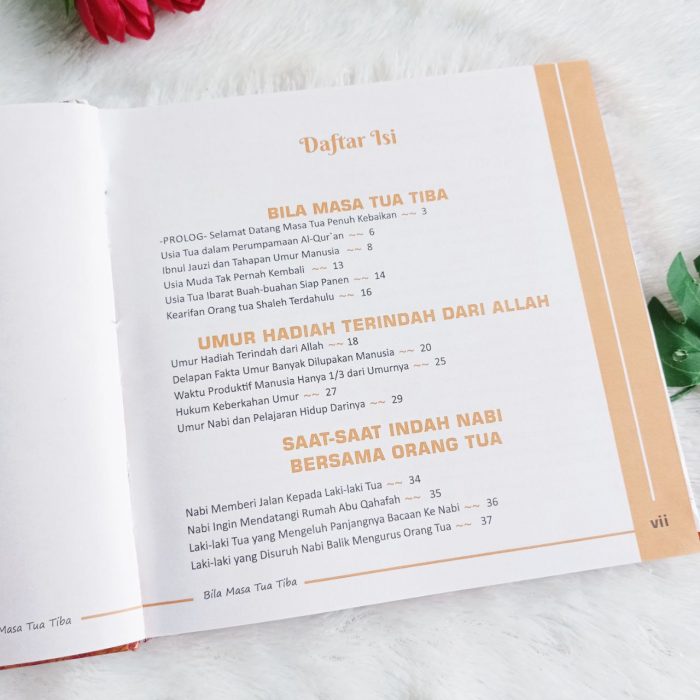 Daftar Isi
BILA MASA TUA TIBA
-PROLOG- Selamat Datang Masa Tua Penuh Kebaikan ~~ 3
Usia Tua dalam Perumpamaan Al-Qur`an ~~ 6
Ibnul Jauzi dan Tahapan Umur Manusia ~~ 8
Usia Muda Tak Pernah Kembali ~~ 13
Usia Tua Ibarat Buah-buahan Siap Panen ~~ 14
Kearifan Orang tua Shaleh Terdahulu ~~ 16
UMUR HADIAH TERINDAH DARI ALLAH
Umur Hadiah Terindah dari Allah ~~ 18
Delapan Fakta Umur Banyak Dilupakan Manusia ~~ 20
Waktu Produktif Manusia Hanya 1/3 dari Umurnya ~~ 25
Hukum Keberkahan Umur ~~ 27
Umur Nabi dan Pelajaran Hidup Darinya ~~ 29
SAAT-SAAT INDAH NABI
BERSAMA ORANG TUA
Nabi Memberi Jalan Kepada Laki-laki Tua ~~ 34
Nabi Ingin Mendatangi Rumah Abu Qahafah ~~ 35
Laki-laki Tua yang Mengeluh Panjangnya Bacaan Ke Nabi ~~ 36
Laki-laki yang Disuruh Nabi Balik Mengurus Orang Tua ~~ 37
vii
Bila Masa Tua Tiba
Masa Tua Tiba